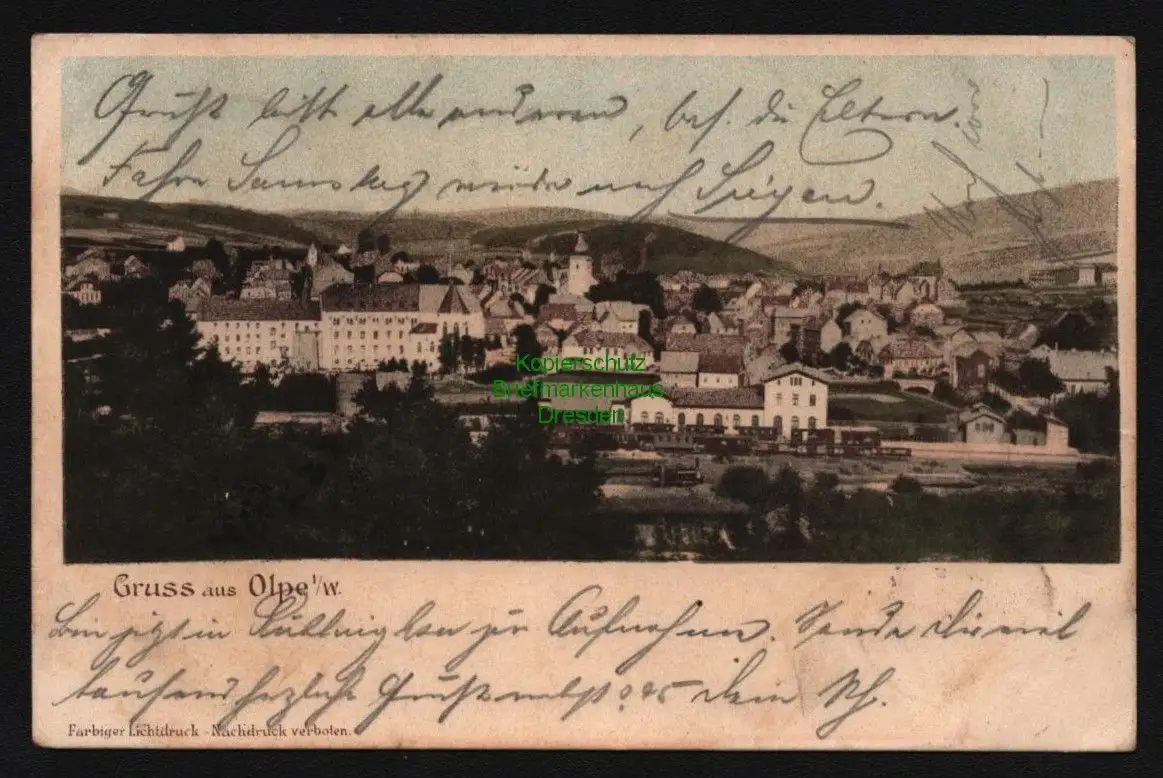 Grüßt bitte alle anderen, bes. die Eltern.
Fahre Samstag wieder nach Siegen.
Kopierschutz
Briefmarkenhaus
Dresden
Gruss aus Olpe i/W.
Bin jetzt in zur Aufnahme. Sende Dir viel
tausend herzliche Grüße nebst Dein
Farbiger Lichtdruck - Nachdruck verboten.